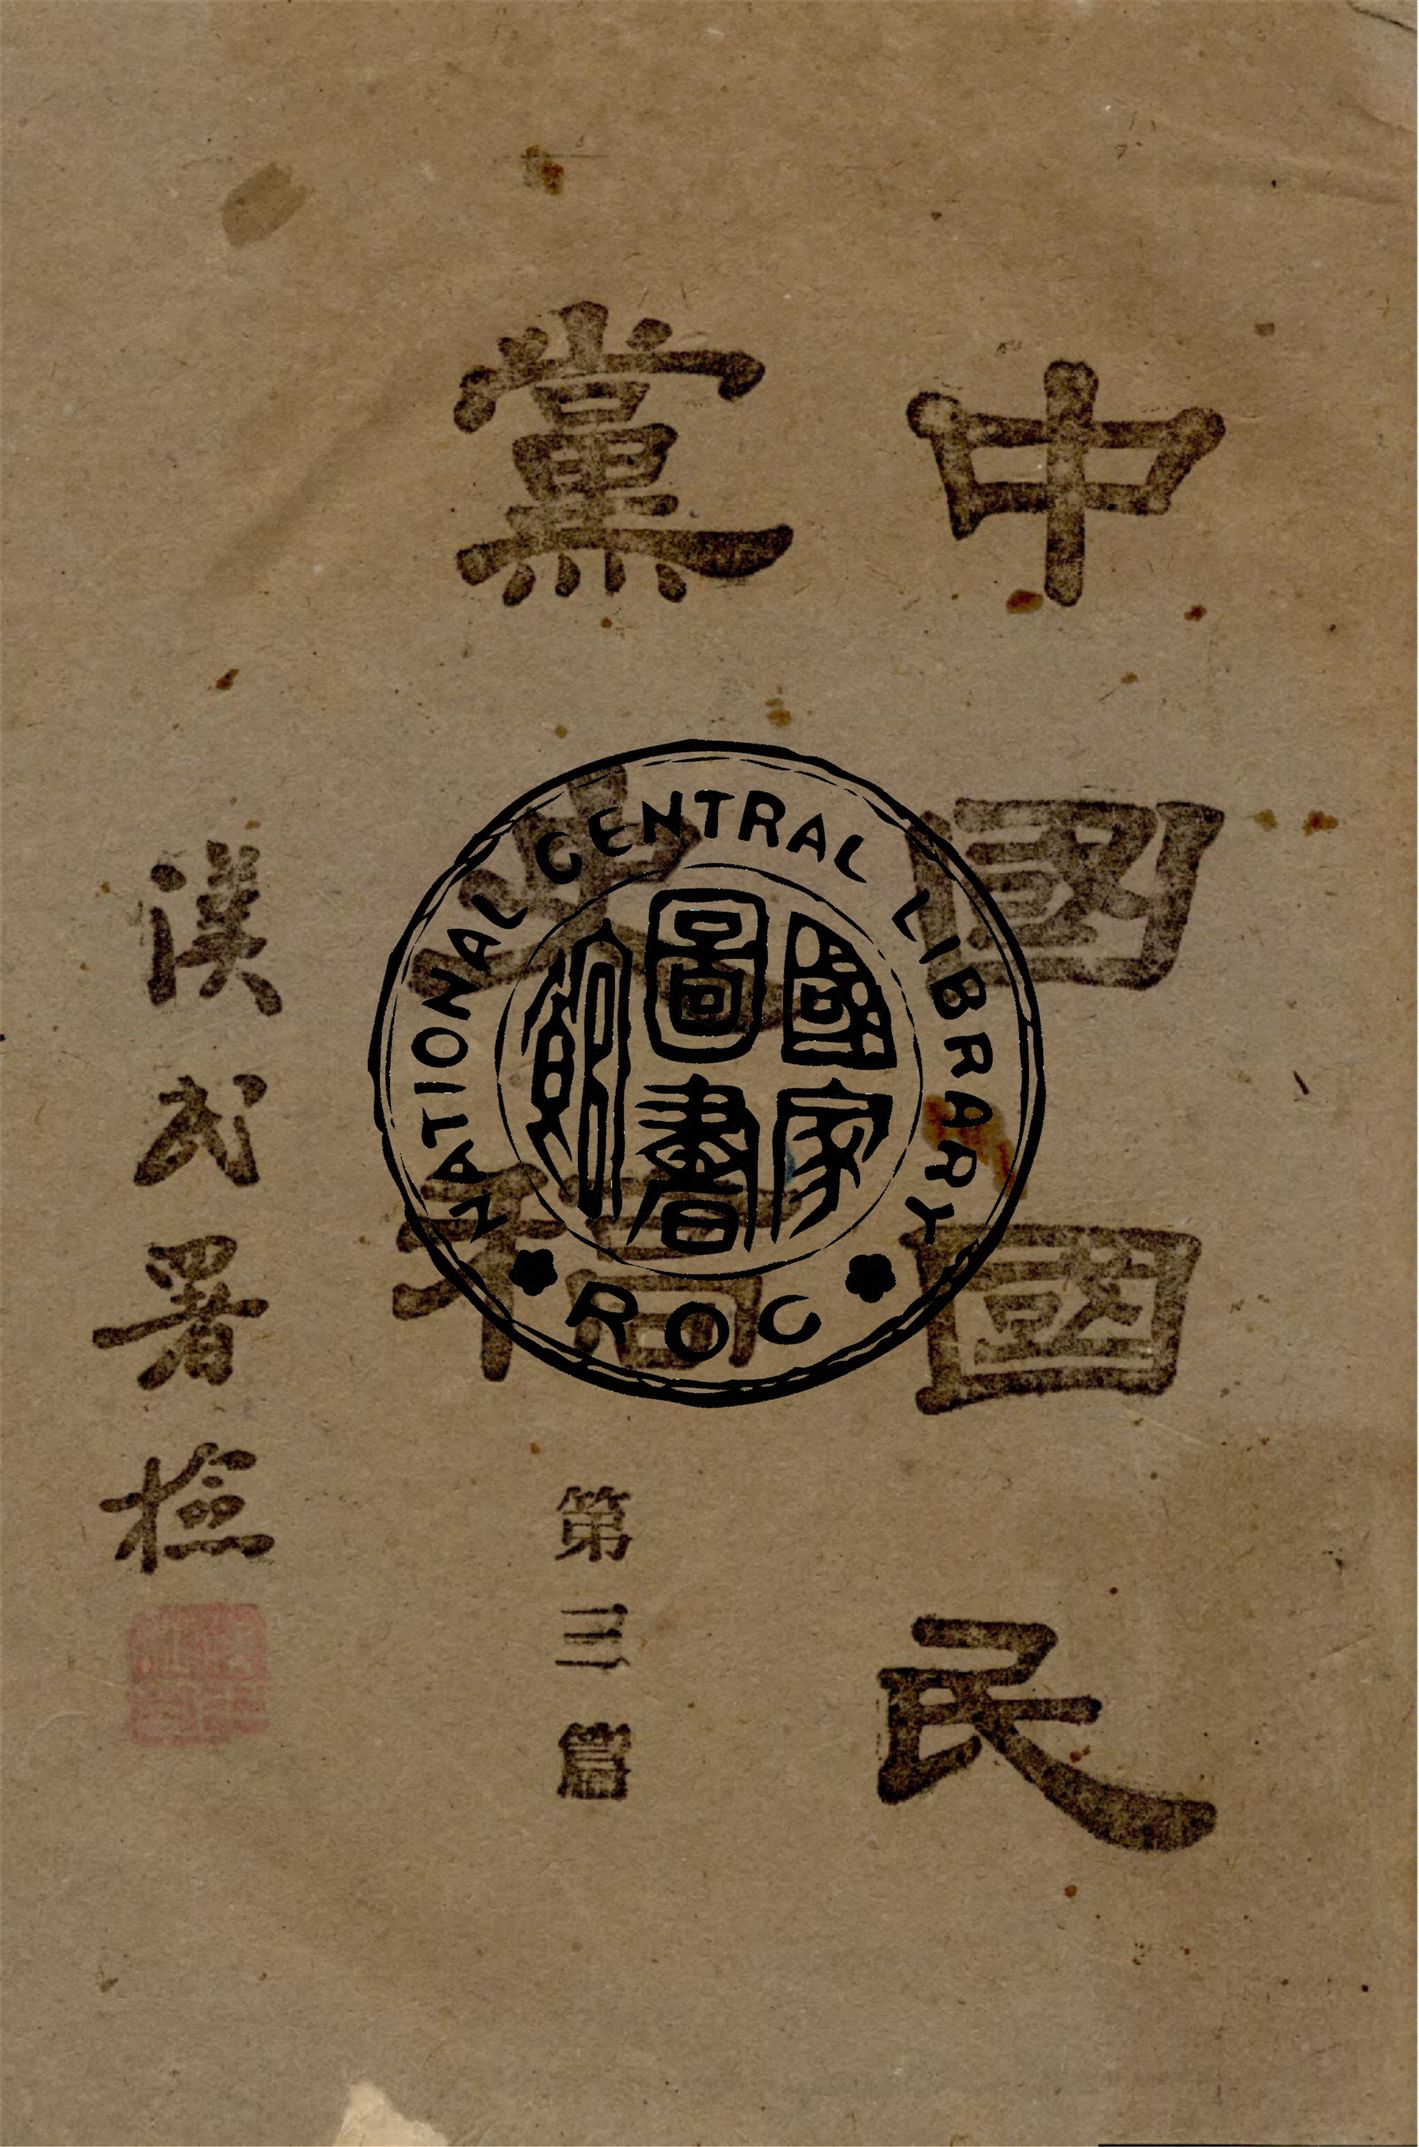 中國國民
黨史稿
第三篇
漢民署檢
NATIONAL CENTRAL LIBRARY
國家
圖書
館
ROC